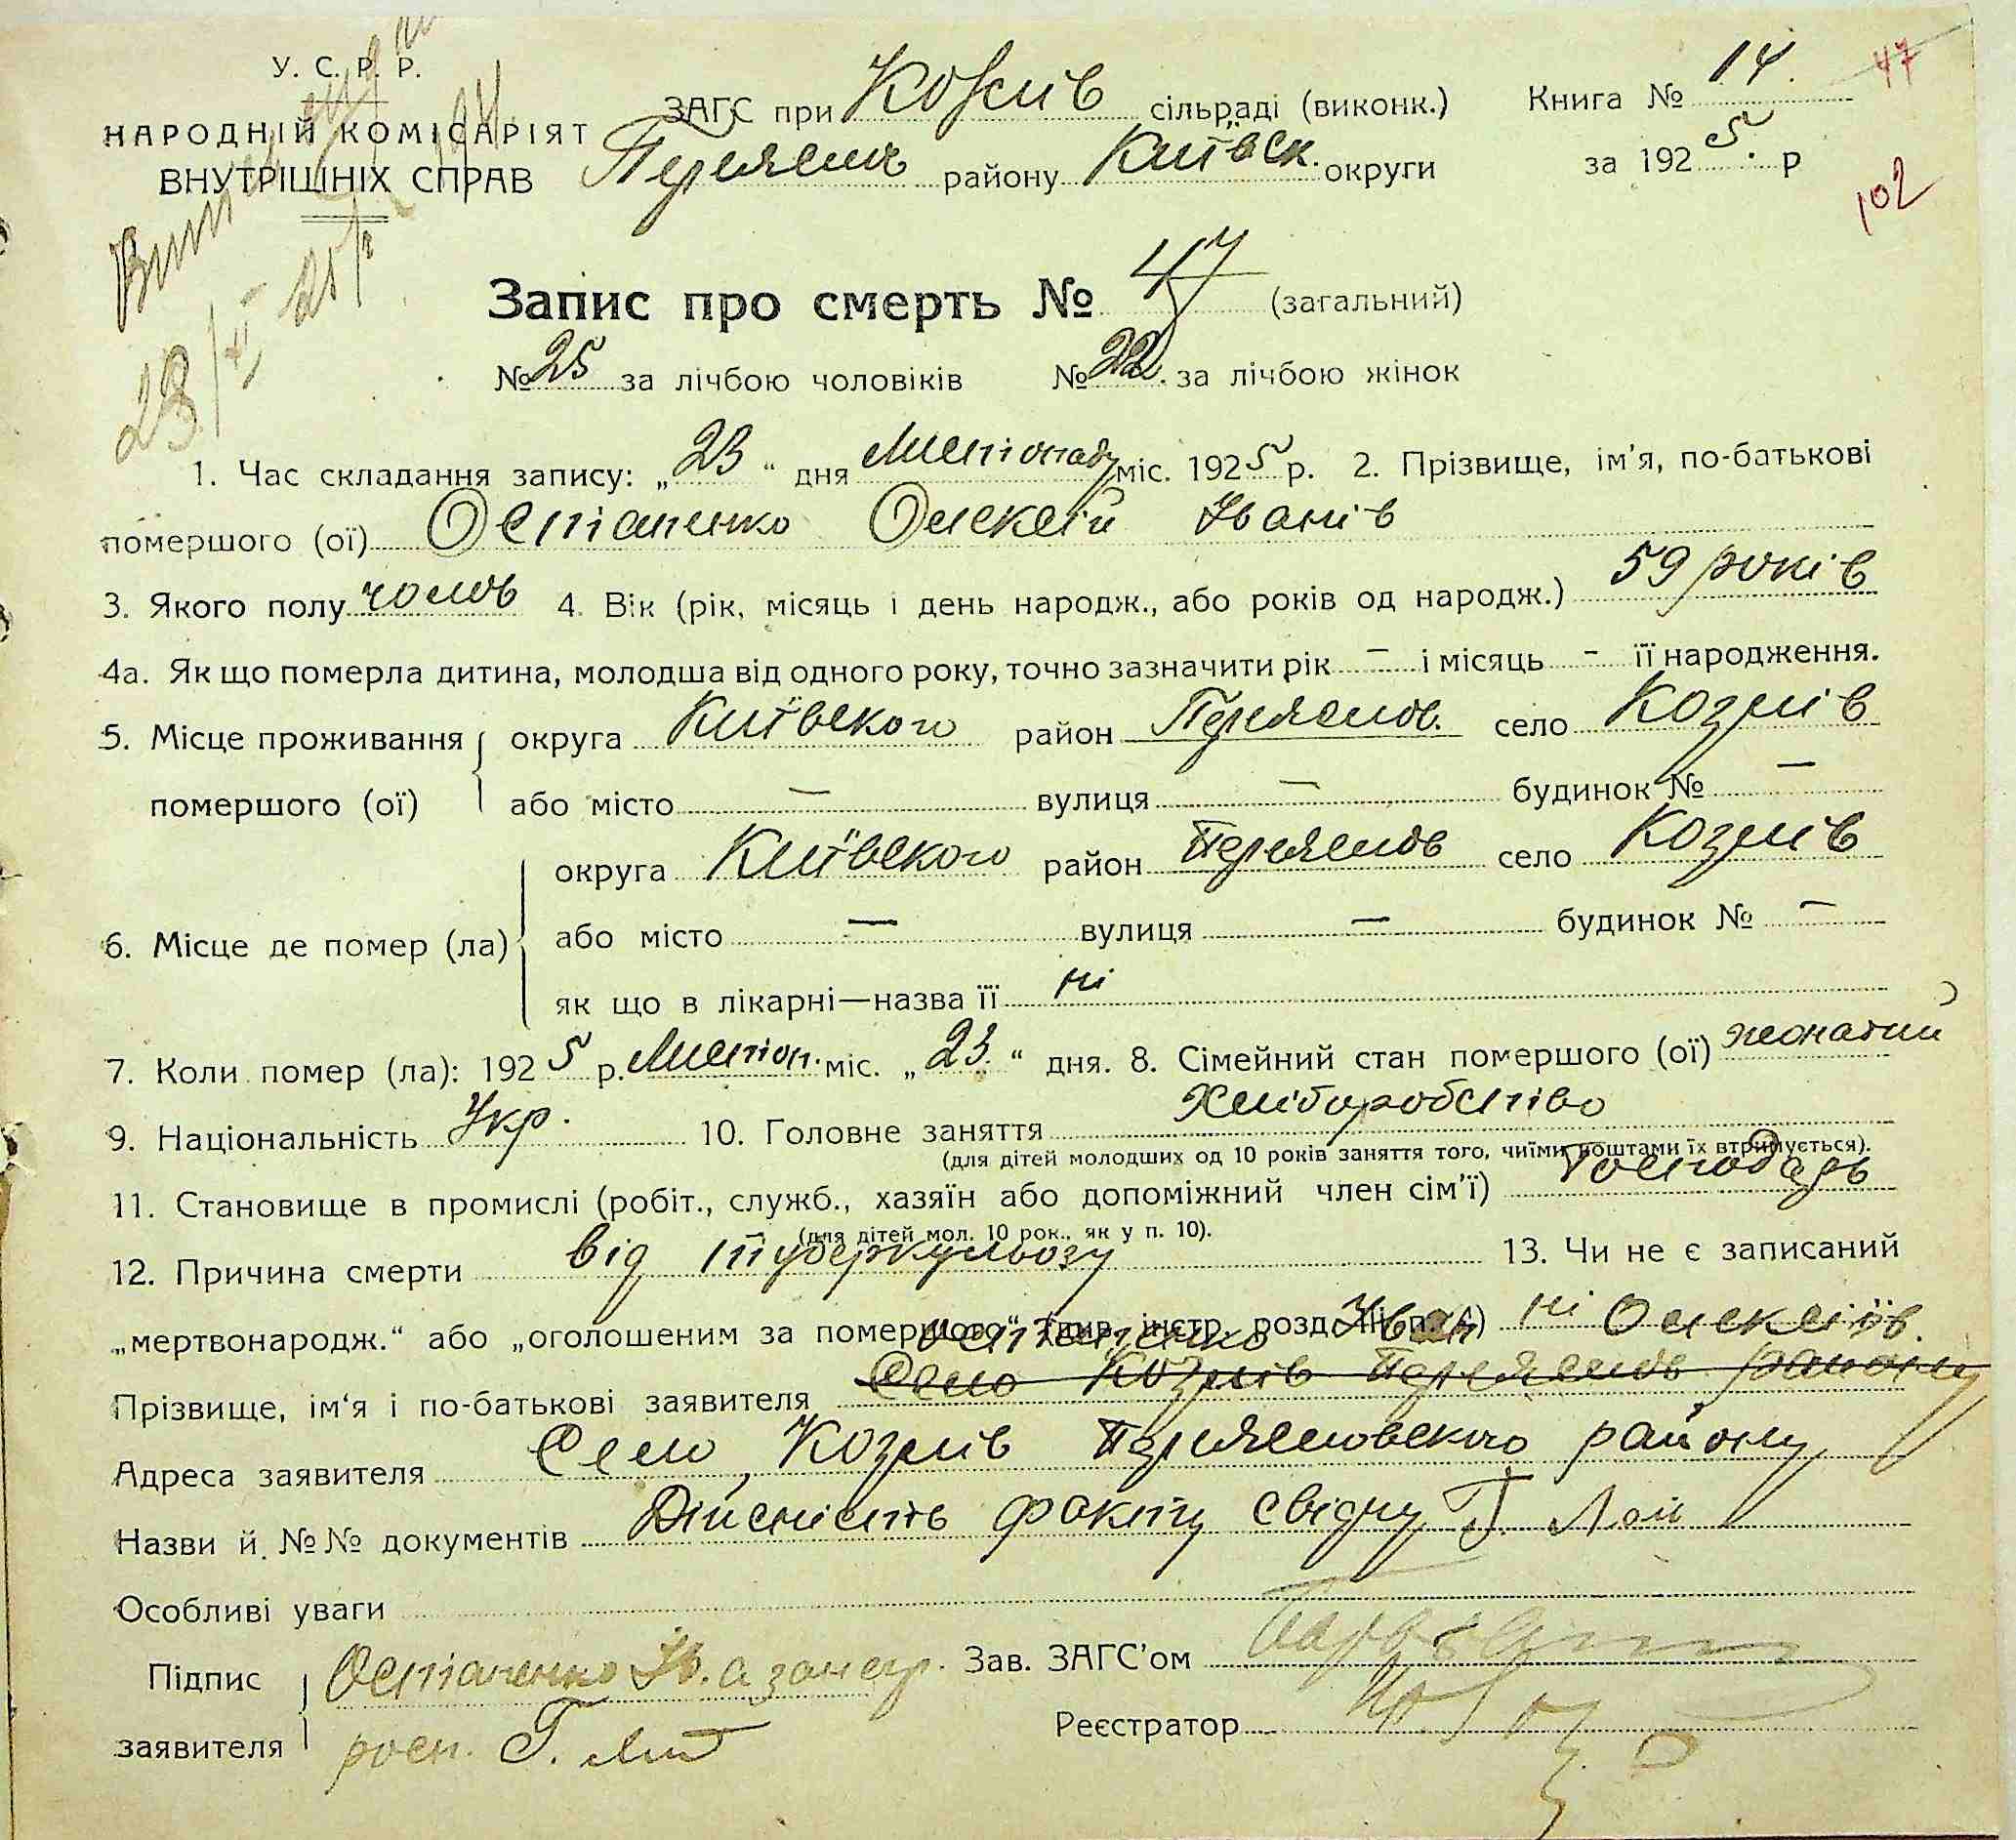 У. С. Р. Р.
НАРОДНІЙ КОМІСАРІЯТ
ВНУТРІШНІХ СПРАВ
ЗАГС при Козлів сільраді (виконк.)
Переяслв району Київск. округи
Книга № 14.
за 1925. р
47
102
23/XI 25 р
Запис про смерть № 47 (загальний)
№ 25 за лічбою чоловіків № 22. за лічбою жінок
1. Час складання запису: „23“ дня Листопаду міс. 1925 р. 2. Прізвище, ім'я, по-батькові
помершого (ої) Остапенко Олексій Іванів
3. Якого полу чолов 4. Вік (рік, місяць і день народж., або років од народж.) 59 років
4а. Як що померла дитина, молодша від одного року, точно зазначити рік – і місяць - її народження.
5. Місце проживання округа Київського район Переяслов. село Козлів
помершого (ої) або місто — вулиця — будинок № —
округа Київського район Переяслов село Козлів
6. Місце де помер (ла) або місто — вулиця — будинок № —
як що в лікарні—назва її ні
7. Коли помер (ла): 1925 р. Листоп. міс. „23.“ дня. 8. Сімейний стан помершого (ої) жонатий
9. Національність Укр. 10. Головне заняття Хліборобство
(для дітей молодших од 10 років заняття того, чиїми коштами їх втримується).
11. Становище в промислі (робіт., служб., хазяїн або допоміжний член сім'ї) Господарь
(для дітей мол. 10 рок., як у п. 10).
12. Причина смерти від туберкульозу 13. Чи не є записаний
„мертвонародж.“ або „оголошеним за помершого“ (див. інстр. розд. ) ні
Остапенко Іван Олексіїв.
Прізвище, ім'я і по-батькові заявителя Село Козлів Переяслов району
Адреса заявителя Село Козлів Переясловского району
Назви й №№ документів Дійсність факту свідчу Г. Лой
Особливі уваги
Підпис заявителя Остапенко Ів. а за негр.
росп. Г. Лой
Зав. ЗАГС'ом
Реєстратор